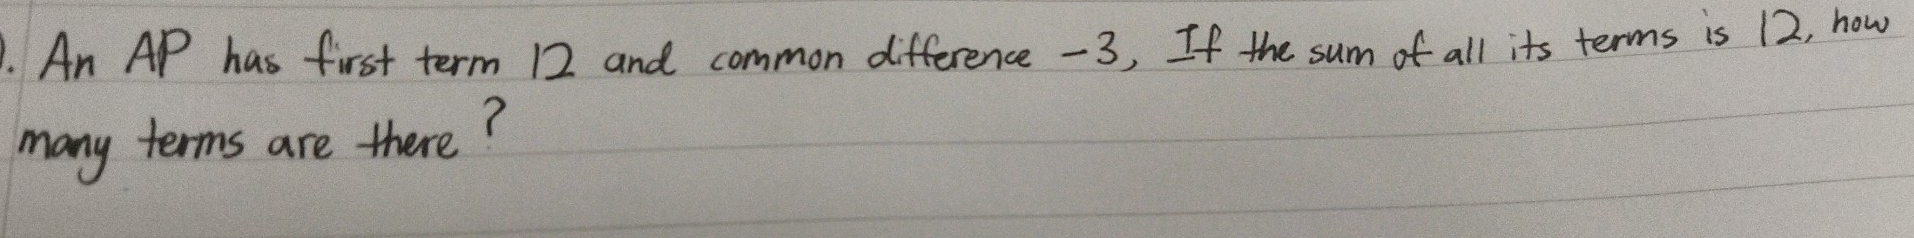 . An AP has first term 12 and common difference -3, If the sum of all its terms is 12, how
many terms are there?